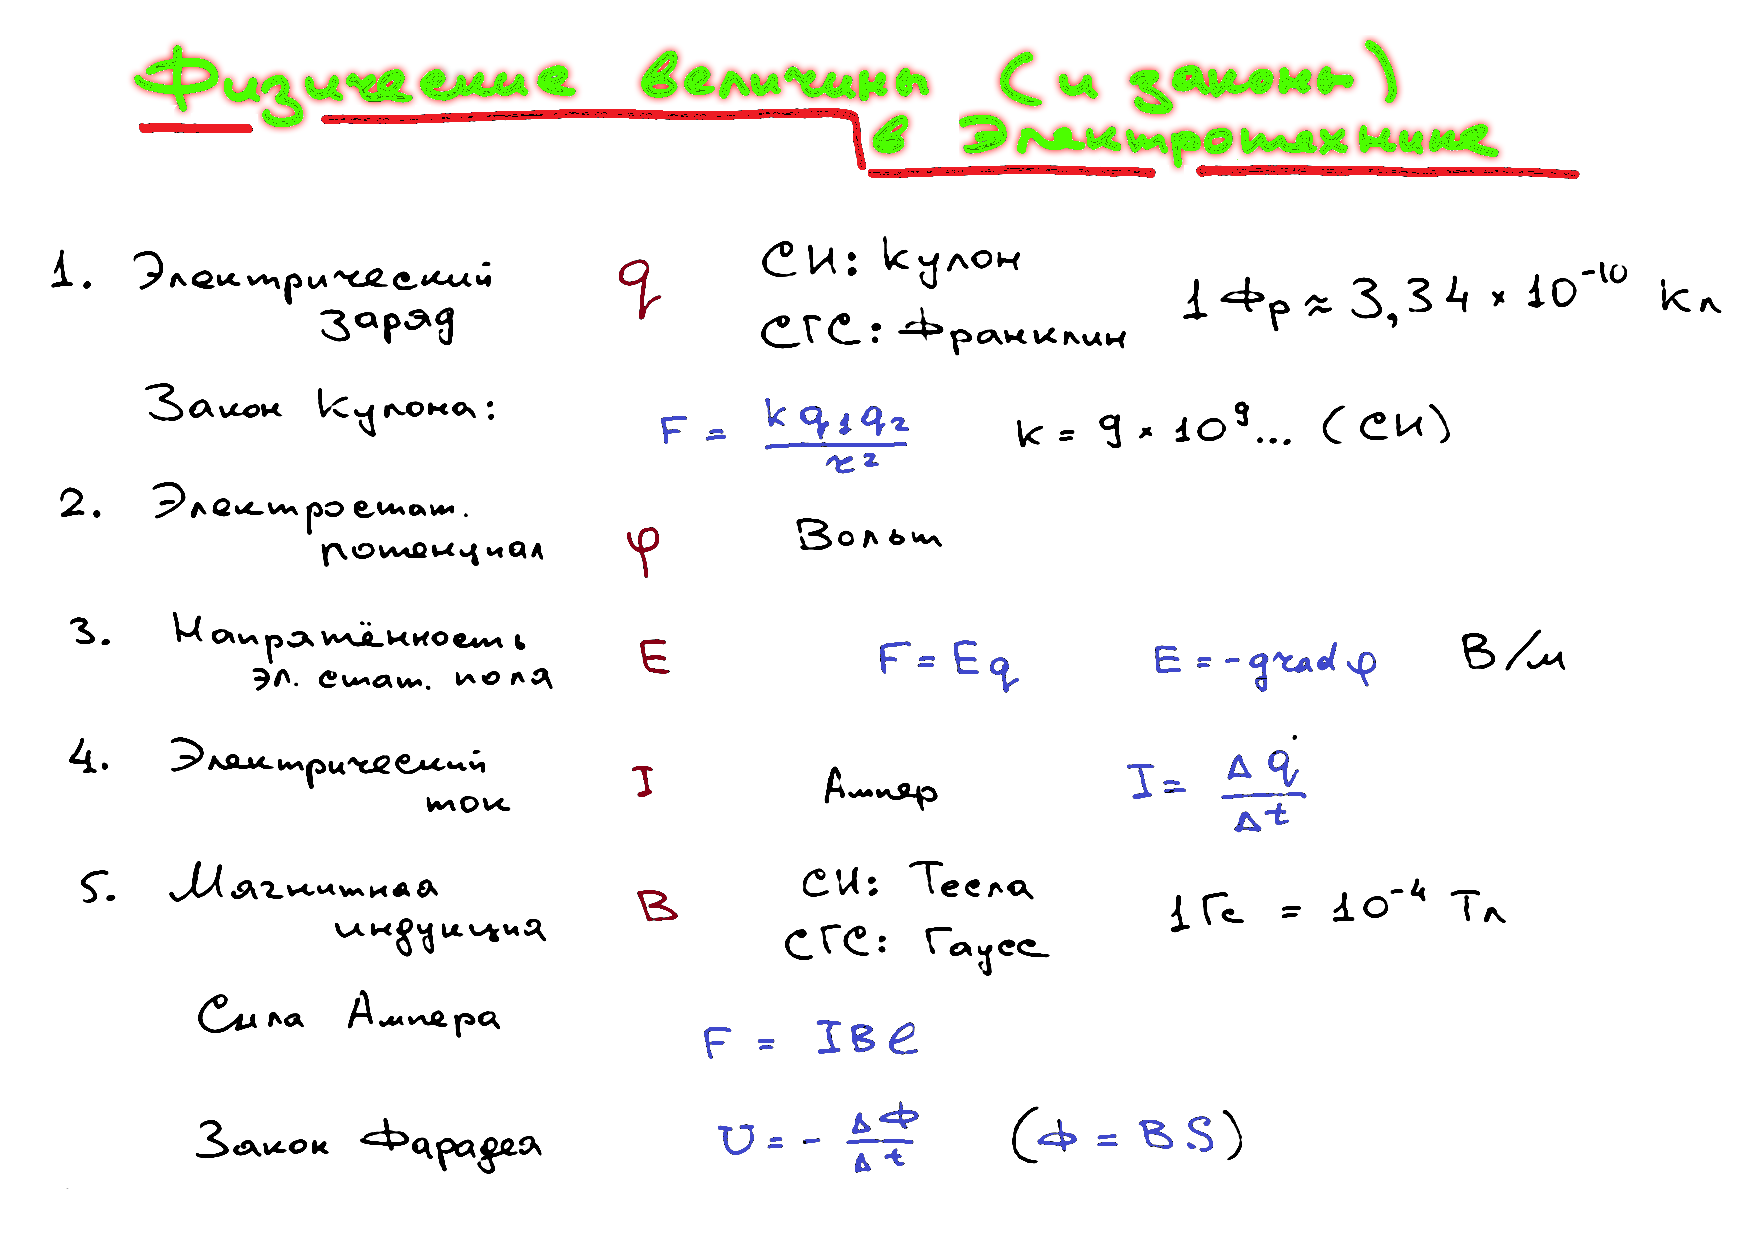 Физические величины (и законы)
в Электротехнике
1. Электрический заряд q СИ: Кулон
СГС: Франклин 1 Фр ≈ 3,34 × 10⁻¹⁰ Кл
Закон Кулона: F = k q₁ q₂ / r² k = 9 × 10⁹... (СИ)
2. Электростат. потенциал φ Вольт
3. Напряжённость эл. стат. поля E F = Eq E = -grad φ В/м
4. Электрический ток I Ампер I = Δq / Δt
5. Магнитная индукция B СИ: Тесла
СГС: Гаусс 1 Гс = 10⁻⁴ Тл
Сила Ампера F = IBℓ
Закон Фарадея U = - ΔФ / Δt (Ф = BS)